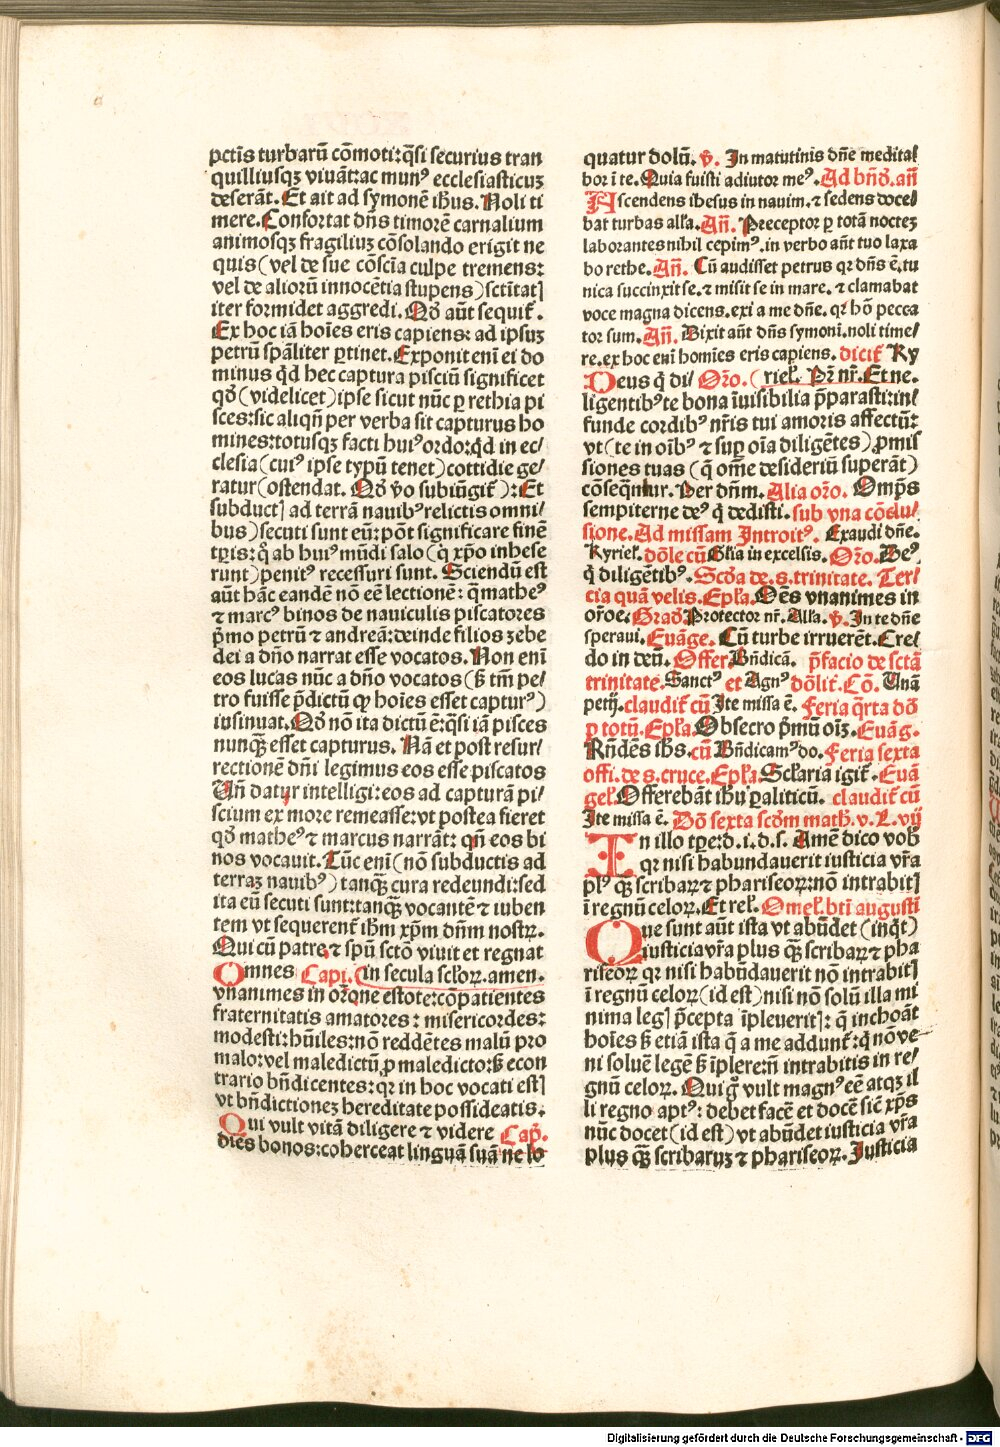 pctīs turbarū cōmoti: q̄si securius tran
quilliusqꝫ viuāt: ac munꝰ ecclesiasticuꝫ
deserāt. Et ait ad symonē ihūs. Noli ti
mere. Confortat dn̄s timorē carnalium
animosqꝫ fragiliuꝫ cōsolando erigit ne
quis (vel de sue cōsciā culpe tremens:
vel de aliorū innocētia stupens) sctītatꝭ
iter formidet aggredi. Qđ aūt sequit᷑.
Ex hoc iā hoīes eris capiens: ad ipsuꝫ
petrū spāliter ꝑtinet. Exponit enī ei do
minus qđ hec captura pisciū significet
qđ (videlicet) ipse sicut nūc ꝑ rethia pi
sces: sic aliqn̄ per verba sit capturus ho
mines: totusqꝫ facti huiꝰ ordo: qđ in ec/
clesia (cuiꝰ ipse typū tenet) cottidie ge/
ratur (ostendat. Qđ v̊o subiūgit᷑): Et
subductꝭ ad terrā nauibꝰ relictis omni/
bus) secuti sunt eū: pōt significare finē
tp̄is: q̄ ab huiꝰ mūdi salo (q̇ xp̄o inhese
runt) penitꝰ recessuri sunt. Sciendū est
aūt hāc eandē nō eē lectionē: q̄ matheꝰ
⁊ marcꝰ binos de nauiculis piscatores
p̄mo petrū ⁊ andreā: deinde filios zebe
dei a dn̄o narrat esse vocatos. Non enī
eos lucas nūc a dn̄o vocatos (ꝭ tm̄ pe/
tro fuisse p̄dictū ꝙ hoīes esset capturꝰ)
insinuat. Qđ nō ita dictū ē: q̄si iā pisces
nunqꝫ̄ esset capturus. Nā et post resur/
rectionē dn̄i legimus eos esse piscatos
Vn̄ datur intelligi: eos ad capturā pi/
scium ex more remeasse: vt postea fieret
qđ matheꝰ ⁊ marcus narrāt: qn̄ eos bi
nos vocauit. Tūc enī (nō subductis ad
terraꝫ nauibꝰ) tanqꝫ̄ cura redeundi: sed
ita eū secuti sunt: tanqꝫ̄ vocantē ⁊ iuben
tem vt sequerent᷑ ihm̄ xp̄m dn̄m nostꝝ.
Qui cū patre ⁊ spū sctō viuit et regnat
Omnes Capi. (in secula sclꝝ. amen.
vnanimes in or̄one estote: cōpatientes
fraternitatis amatores: misericordes:
modesti: hūiles: nō reddētes malū pro
malo: vel maledictū ꝓ maledicto: ꝭ econ
trario bn̄dicentes: qꝛ in hoc vocati estꝭ
vt bn̄dictioneꝫ hereditate possideatis.
Qui vult vitā diligere ⁊ videre Cap̄.
dies bonos: coherceat linguā suā ne lo
quatur dolū. v̄. In matutinis dn̄e medita/
bor ī te. Quia fuisti adiutor meꝰ. Ad bn̄đ. an̄
Ascendens ihesus in nauim. ⁊ sedens doce/
bat turbas all'a. An̄. Preceptor ꝑ totā nocteꝫ
laborantes nihil cepimꝰ. in verbo aūt tuo laxa
bo rethe. An̄. Cū audisset petrus qꝛ dn̄s ē. tu
nica succinxit se. ⁊ misit se in mare. ⁊ clamabat
voce magna dicens. exi a me dn̄e. qꝛ hō pecca
tor sum. An̄. Dixit aūt dn̄s symoni. noli time/
re. ex hoc enī homīes eris capiens. dicit᷑ Ky
Deus q̇ di/ Oro. (riel'. Pr̄ nr̄. Et ne.
ligentibꝰ te bona īuisibilia p̄parasti: in/
funde cordibꝰ nr̄is tui amoris affectū:
vt (te in oībꝰ ⁊ suꝑ oīa diligētes) ꝓmis
siones tuas (q̄ om̄e desideriū superāt)
cōseqm̄ur. Per dn̄m. Alia or̄o. Omp̄s
sempiterne deꝰ q̇ dedisti. sub vna cōclu/
sione. Ad missam Introitꝰ. Exaudi dn̄e.
Kyriel'. dōle cū Gl'ia in excelsis. Or̄o. Deꝰ
q̇ diligētibꝰ. Scđa de. s. trinitate. Ter/
cia quā velis. Epl'a. Oēs vnanimes in
or̄oe. Građ. Protector nr̄. All'a. v̄. In te dn̄e
speraui. Euāge. Cū turbe irruerēt. Cre/
do in deū. Offer. Bn̄dicā. p̄facio de sctā
trinitate. Sanctꝰ et Agnꝰ dōlit᷑. Cō. Vnā
petij. claudit᷑ cū Ite missa ē. Feria q̄rta dō
ꝑ totū. Epl'a. Obsecro p̄mū oīꝫ. Euāg.
Rn̄dēs ihs̄. cū Bn̄dicamꝰ do. Feria sexta
offi. de s. cruce. Epl'a. Scl'aria igit᷑. Euā
gel'. Offerebāt ihū ꝑaliticū. claudit᷑ cū
Ite missa ē. Dō sexta scđm math. v. L. vij
In illo tꝑe: d. i. d. s. Amē dico vob̄
qꝛ nisi habundauerit iusticia vr̄a
plꝰ qꝫ̄ scribaꝝ ⁊ phariseoꝝ: nō intrabitꝭ
ī regnū celoꝝ. Et rel'. Omel'. bt̄i augusti
Que sunt aūt ista vt abūdet (inq̇t)
iusticia vr̄a plus qꝫ̄ scribaꝝ ⁊ pha
riseoꝝ qꝛ nisi habūdauerit nō intrabitꝭ
ī regnū celoꝝ (id est) nisi nō solū illa mi
nima legꝭ p̄cepta īpleueritꝭ: q̄ inchoāt
hoīes ꝭ etiā ista q̄ a me addunt᷑: q̇ nō ve
ni soluē legē ꝭ īplere: n̄ intrabitis in re/
gnū celoꝝ. Qui g̊ vult magnꝰ eē atqꝫ il
li regno aptꝰ: debet facē et docē sic̄ xp̄s
nūc docet (id est) vt abūdet iusticia vr̄a
plus qꝫ̄ scribaruꝫ ⁊ phariseoꝝ. Justicia
Digitalisierung gefördert durch die Deutsche Forschungsgemeinschaft - DFG